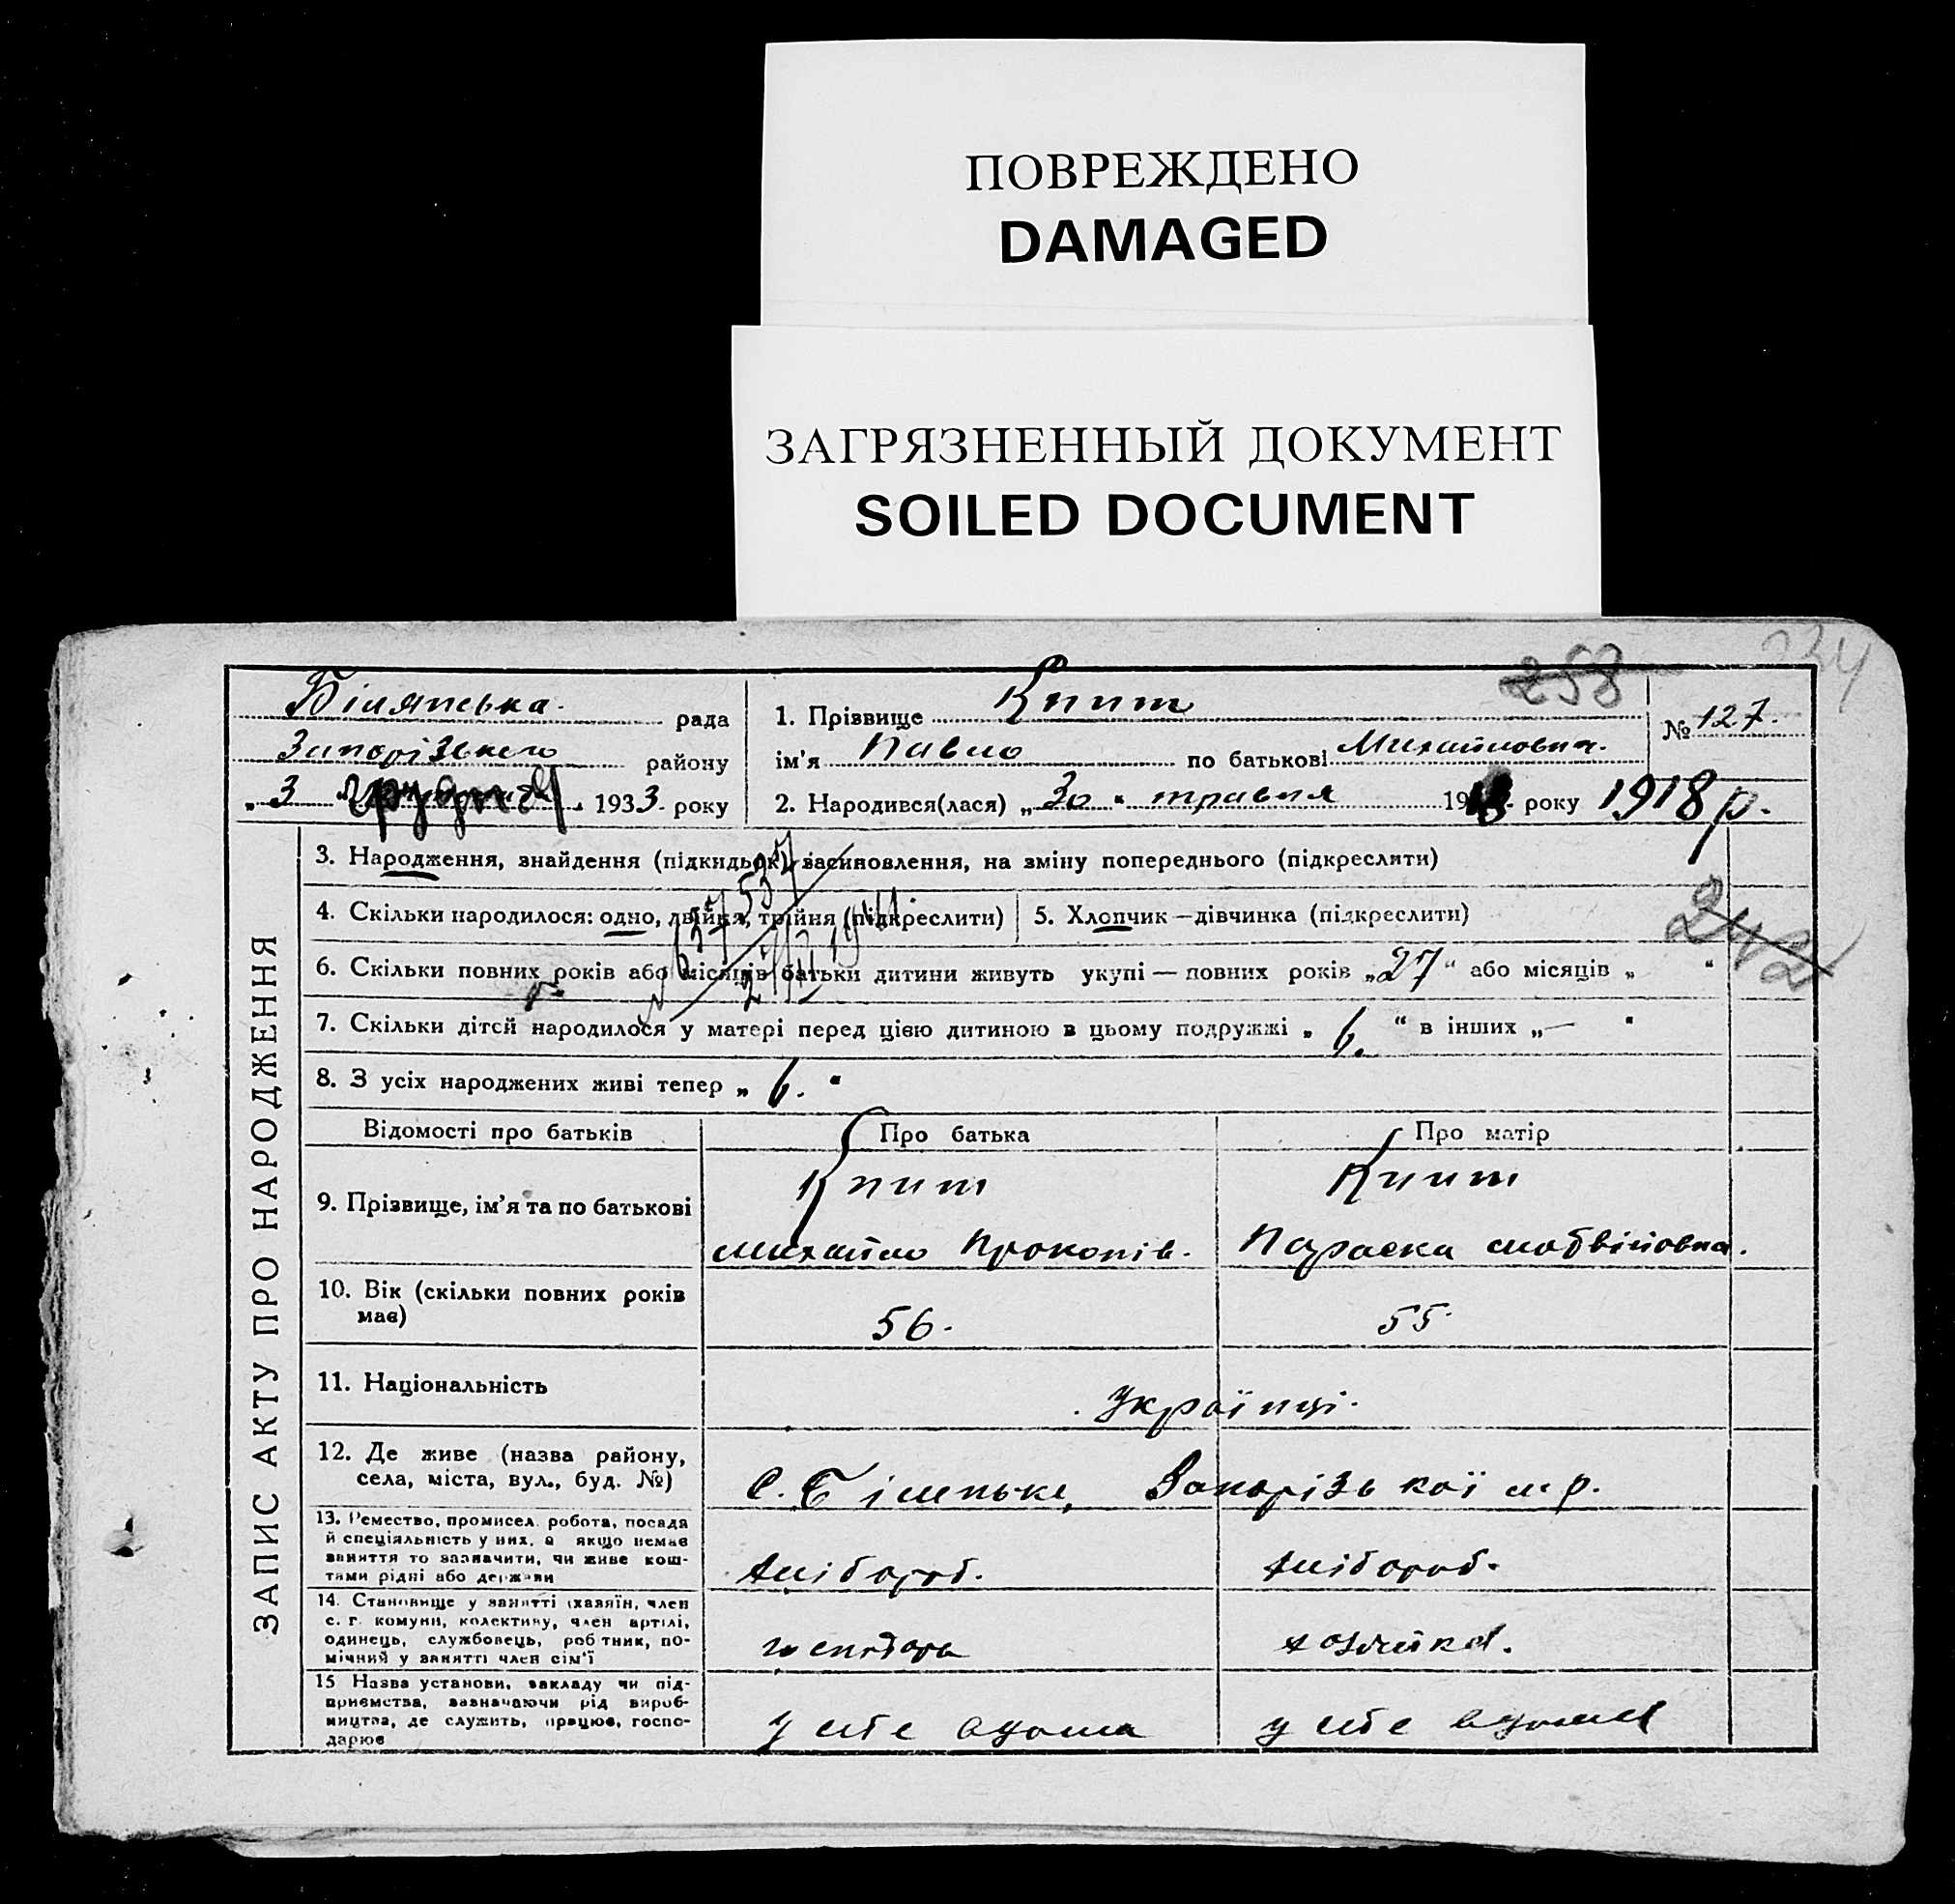 ПОВРЕЖДЕНО
DAMAGED
ЗАГРЯЗНЕННЫЙ ДОКУМЕНТ
SOILED DOCUMENT
258
Білянська рада
Запорізького району
„3 грудня 1933 року
1. Прізвище Книш
№ 127.
ім'я Павло по батькові Михайлович.
2. Народився(лася) „30“ травня 19 року 1918 р.
ЗАПИС АКТУ ПРО НАРОДЖЕННЯ
3. Народження, знайдення (підкидьок), засиновлення, на зміну попереднього (підкреслити)
4. Скільки народилося: одно, двійня, трійня (підкреслити)
5. Хлопчик — дівчинка (підкреслити)
242
6. Скільки повних років або місяців батьки дитини живуть укупі — повних років „27“ або місяців „ “
7. Скільки дітей народилося у матері перед цією дитиною в цьому подружжі „ 6. “ в інших „— “
8. З усіх народжених живі тепер „ 6. “
Відомості про батьків
Про батька
Про матір
9. Прізвище, ім'я та по батькові
Книш
Михайло Прокопів.
Книш
Параска Матвіївна.
10. Вік (скільки повних років має)
56.
55.
11. Національність
Українці.
12. Де живе (назва району,
села, міста, вул., буд. №)
С. Біленьке, Запорізької м. р.
13. Ремество, промисел, робота, посада
й спеціяльність у них, а якщо немає
заняття то зазначити, чи живе кош-
тами рідні або держави
хлібороб.
хлібороб.
14. Становище у занятті (хазяїн, член
с. г. комуни, колективу, член артілі,
одинець, службовець, робітник, по-
мічний у занятті член сім'ї
хозяйка.
15 Назва установи, закладу чи під-
приємства, зазначаючи рід вироб-
ництва, де служить, працює, госпо-
дарює
у себе вдома
у себе вдома